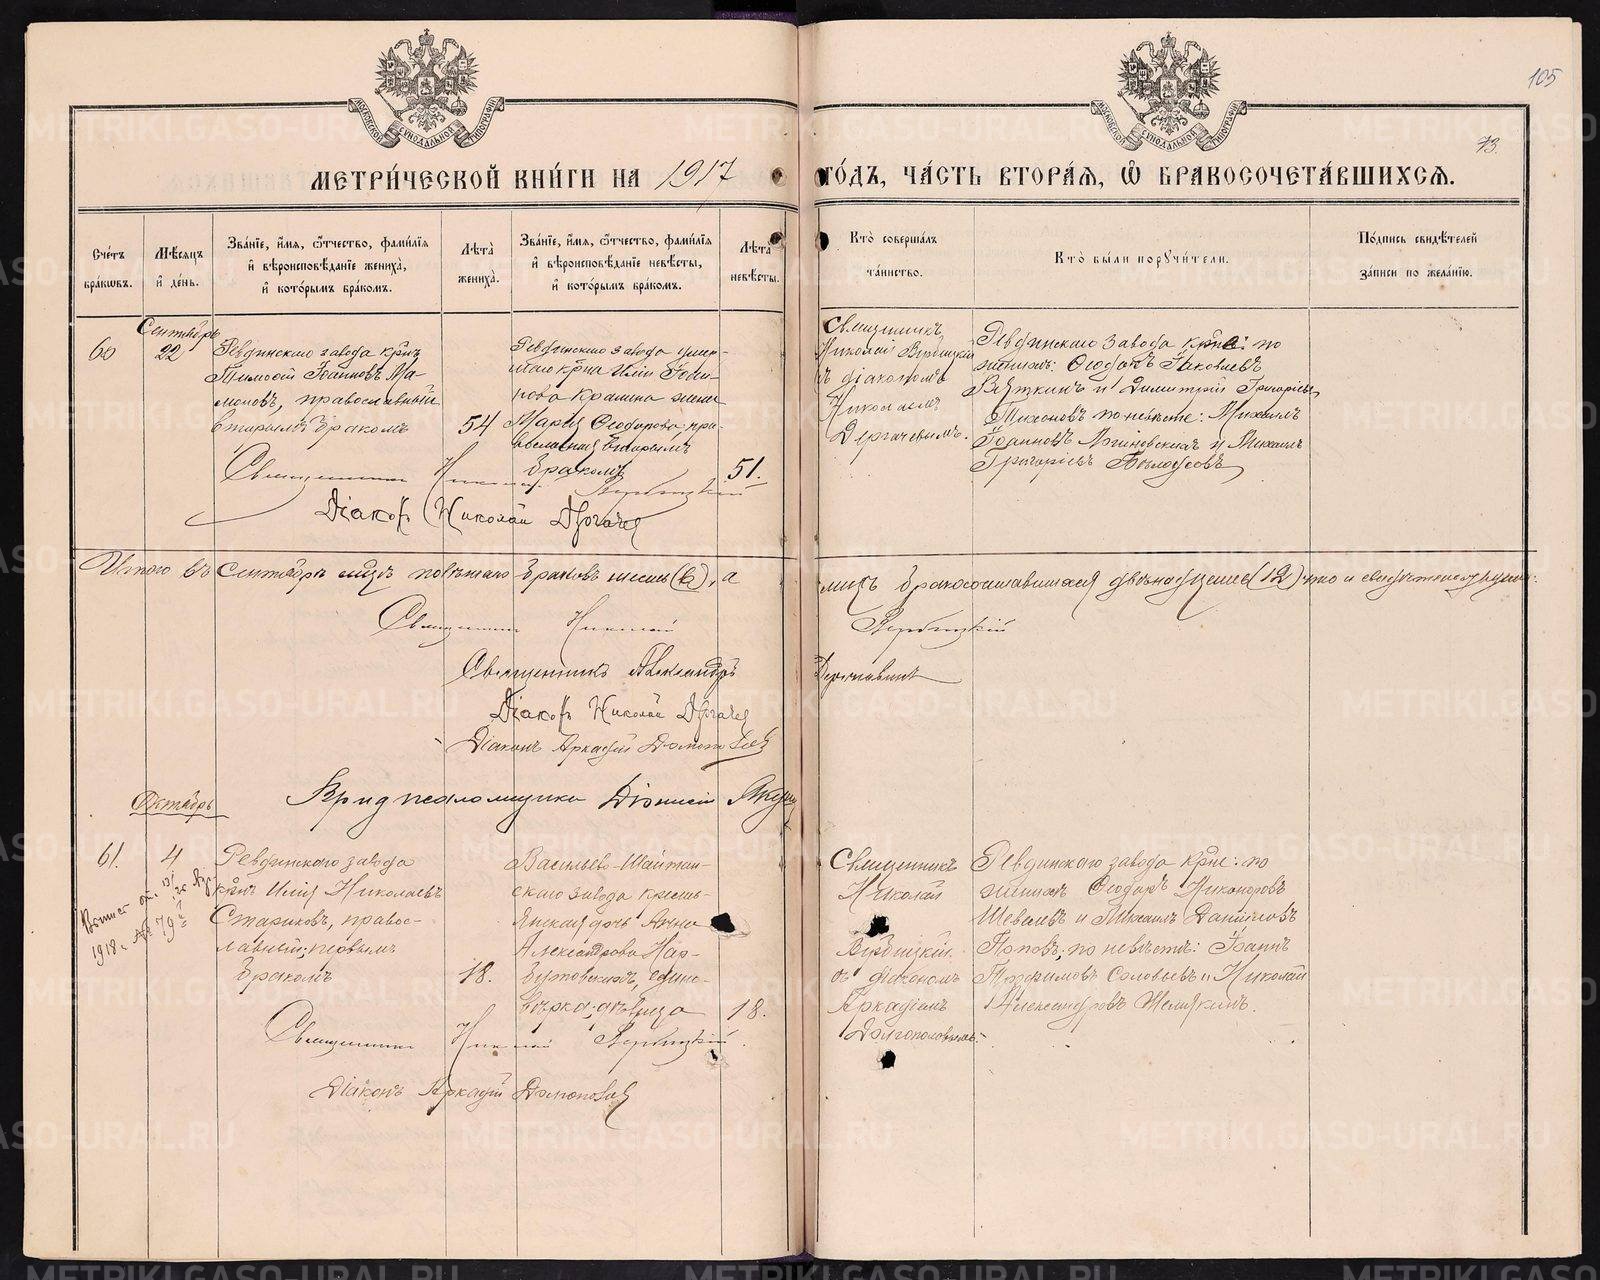 105
73.
МОСКОВСКОЙ СѴНОДАЛЬНОЙ ТИПОГРАФІИ
МОСКОВСКОЙ СѴНОДАЛЬНОЙ ТИПОГРАФІИ
МЕТРИ́ЧЕСКОЙ КНИ́ГИ НА 1917 ГО́ДЪ, ЧА́СТЬ ВТОРА́Я, Ѽ БРАКОСОЧЕТА́ВШИХСЯ.
Сче́тъ бра́кѡвъ.
Мѣ́сяцъ и҆ де́нь.
Зва́нїе, и҆́мя, ѻ҆́тчество, фами́лїя и҆ вѣроисповѣ́данїе жениха̀, и҆ кото́рымъ бра́комъ.
Лѣ́та жениха̀.
Зва́нїе, и҆́мя, ѻ҆́тчество, фами́лїя и҆ вѣроисповѣ́данїе невѣ́сты, и҆ кото́рымъ бра́комъ.
Лѣ́та невѣ́сты.
Кто̀ соверша́лъ та́инство.
Кто̀ бы́ли порꙋчи́тели.
По́дпись свидѣ́телей за́писи по жела́нїю.
60
Сентябрь
22
Ревдинскаго завода крнъ
Тимофей Іоанновъ Ма-
моновъ, православный
вторымъ бракомъ
54
Ревдинскаго завода умер-
шаго крна Иліи Іоан-
нова жена
Марія Ѳеодорова, пра-
вославная, вторымъ
бракомъ
51.
Священникъ
Николай Вербицкій
съ діакономъ
Николаемъ
Дергачевымъ.
Ревдинскаго завода крне: по
женихѣ: Ѳеодоръ Іаковлевъ
Вяткинъ и Димитрій Григорьевъ
Тихоновъ по невѣстѣ: Михаилъ
Іоанновъ и Михаилъ
Григорьевъ Бѣлоусовъ
Священникъ Николай Вербицкій
Діаконъ Николай Дергачев
Итого въ Сентябрѣ м-цѣ повѣнчано браковъ шесть (6), а
лицъ бракосочетавшихся двѣнадцать (12) что и свидѣтельствуемъ:
Священникъ Николай Вербицкій
Священникъ Александръ
Діаконъ Николай Дергачев
Діаконъ Аркадій Долгополовъ
псаломщика Діонисій
Октябрь
61.
4
1918 г. № 79
Ревдинскаго завода
крнъ Илія Николаевъ
Стариковъ, правос-
лавный; первымъ
бракомъ
18.
Васильево-Шайтан-
скаго завода кресть-
янская дочь Анна
Александрова Нар-
бутовскихъ, едино-
вѣрка, дѣвица
18.
Священникъ
Николай
Вербицкій
съ діакономъ
Аркадіемъ
Долгополовымъ.
Ревдинскаго завода крне: по
женихѣ Ѳеодоръ Никаноровъ
Шевелевъ и Михаилъ Даниловъ
Поповъ; по невѣстѣ: Іоаннъ
Трофимовъ Соловьевъ и Николай
Александровъ Шелякинъ.
Священникъ Николай Вербицкій
Діаконъ Аркадій Долгополовъ
METRIKI.GASO-URAL.RU